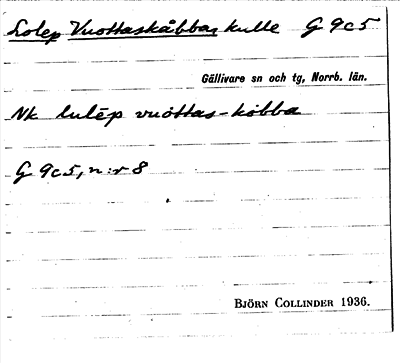 Lolep Vuottaskåbba, kulle G 9c5
Gällivare sn och tg, Norrb. län.
Nk lulēp vuottas-kobba
G 9c5, n:r 8
BJÖRN COLLINDER 1936.